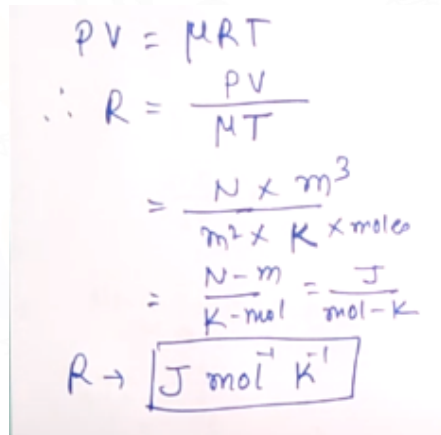 PV = μRT
∴ R = PV / μT
= N x m³ / m² x K x moles
= N-m / K-mol = J / mol-K
R → J mol⁻¹ K⁻¹